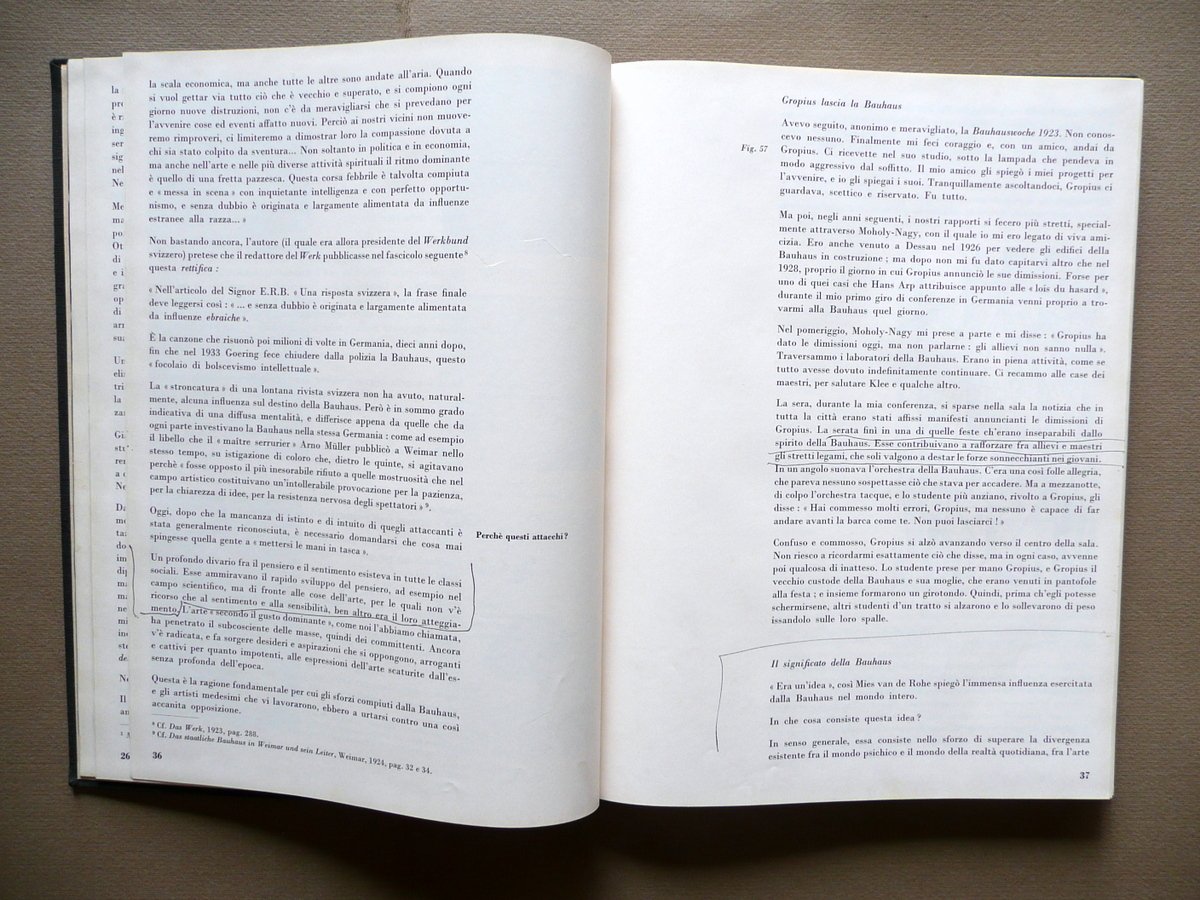 la scala economica, ma anche tutte le altre sono andate all'aria. Quando
si vuol gettar via tutto ciò che è vecchio e superato, e si compiono ogni
giorno nuove distruzioni, non c'è da meravigliarsi che si prevedano per
l'avvenire cose ed eventi affatto nuovi. Perciò ai nostri vicini non muove-
remo rimproveri, ci limiteremo a dimostrar loro la compassione dovuta a
chi sia stato colpito da sventura... Non soltanto in politica e in economia,
ma anche nell'arte e nelle più diverse attività spirituali il ritmo dominante
è quello di una fretta pazzesca. Questa corsa febbrile è talvolta compiuta
e « messa in scena » con inquietante intelligenza e con perfetto opportu-
nismo, e senza dubbio è originata e largamente alimentata da influenze
estranee alla razza... »
Non bastando ancora, l'autore (il quale era allora presidente del Werkbund
svizzero) pretese che il redattore del Werk pubblicasse nel fascicolo seguente⁸
questa rettifica :
« Nell'articolo del Signor E.R.B. « Una risposta svizzera », la frase finale
deve leggersi così : « ... e senza dubbio è originata e largamente alimentata
da influenze ebraiche ».
È la canzone che risuonò poi milioni di volte in Germania, dieci anni dopo,
fin che nel 1933 Goering fece chiudere dalla polizia la Bauhaus, questo
« focolaio di bolscevismo intellettuale ».
La « stroncatura » di una lontana rivista svizzera non ha avuto, natural-
mente, alcuna influenza sul destino della Bauhaus. Però è in sommo grado
indicativa di una diffusa mentalità, e differisce appena da quelle che da
ogni parte investivano la Bauhaus nella stessa Germania : come ad esempio
il libello che il « maître serrurier » Arno Müller pubblicò a Weimar nello
stesso tempo, su istigazione di coloro che, dietro le quinte, si agitavano
perchè « fosse opposto il più inesorabile rifiuto a quelle mostruosità che nel
campo artistico costituivano un'intollerabile provocazione per la pazienza,
per la chiarezza di idee, per la resistenza nervosa degli spettatori »⁹.
Oggi, dopo che la mancanza di istinto e di intuito di quegli attaccanti è
stata generalmente riconosciuta, è necessario domandarsi che cosa mai
spingesse quella gente a « mettersi le mani in tasca ».
Perchè questi attacchi?
Un profondo divario fra il pensiero e il sentimento esisteva in tutte le classi
sociali. Esse ammiravano il rapido sviluppo del pensiero, ad esempio nel
campo scientifico, ma di fronte alle cose dell'arte, per le quali non v'è
ricorso che al sentimento e alla sensibilità, ben altro era il loro atteggia-
mento. L'arte « secondo il gusto dominante », come noi l'abbiamo chiamata,
ha penetrato il subcosciente delle masse, quindi dei committenti. Ancora
v'è radicata, e fa sorgere desideri e aspirazioni che si oppongono, arroganti
e cattivi per quanto impotenti, alle espressioni dell'arte scaturite dall'es-
senza profonda dell'epoca.
Questa è la ragione fondamentale per cui gli sforzi compiuti dalla Bauhaus,
e gli artisti medesimi che vi lavorarono, ebbero a urtarsi contro una così
accanita opposizione.
⁸ Cf. Das Werk, 1923, pag. 288.
⁹ Cf. Das staatliche Bauhaus in Weimar und sein Leiter, Weimar, 1924, pag. 32 e 34.
26
36
Gropius lascia la Bauhaus
Avevo seguito, anonimo e meravigliato, la Bauhauswoche 1923. Non conos-
cevo nessuno. Finalmente mi feci coraggio e, con un amico, andai da
Fig. 57
Gropius. Ci ricevette nel suo studio, sotto la lampada che pendeva in
modo aggressivo dal soffitto. Il mio amico gli spiegò i miei progetti per
l'avvenire, e io gli spiegai i suoi. Tranquillamente ascoltandoci, Gropius ci
guardava, scettico e riservato. Fu tutto.
Ma poi, negli anni seguenti, i nostri rapporti si fecero più stretti, special-
mente attraverso Moholy-Nagy, con il quale io mi ero legato di viva ami-
cizia. Ero anche venuto a Dessau nel 1926 per vedere gli edifici della
Bauhaus in costruzione ; ma dopo non mi fu dato capitarvi altro che nel
1928, proprio il giorno in cui Gropius annunciò le sue dimissioni. Forse per
uno di quei casi che Hans Arp attribuisce appunto alle « lois du hasard »,
durante il mio primo giro di conferenze in Germania venni proprio a tro-
varmi alla Bauhaus quel giorno.
Nel pomeriggio, Moholy-Nagy mi prese a parte e mi disse : « Gropius ha
dato le dimissioni oggi, ma non parlarne : gli allievi non sanno nulla ».
Traversammo i laboratori della Bauhaus. Erano in piena attività, come se
tutto avesse dovuto indefinitamente continuare. Ci recammo alle case dei
maestri, per salutare Klee e qualche altro.
La sera, durante la mia conferenza, si sparse nella sala la notizia che in
tutta la città erano stati affissi manifesti annuncianti le dimissioni di
Gropius. La serata finì in una di quelle feste ch'erano inseparabili dallo
spirito della Bauhaus. Esse contribuivano a rafforzare fra allievi e maestri
gli stretti legami, che soli valgono a destar le forze sonnecchianti nei giovani.
In un angolo suonava l'orchestra della Bauhaus. C'era una così folle allegria,
che pareva nessuno sospettasse ciò che stava per accadere. Ma a mezzanotte,
di colpo l'orchestra tacque, e lo studente più anziano, rivolto a Gropius, gli
disse : « Hai commesso molti errori, Gropius, ma nessuno è capace di far
andare avanti la barca come te. Non puoi lasciarci ! »
Confuso e commosso, Gropius si alzò avanzando verso il centro della sala.
Non riesco a ricordarmi esattamente ciò che disse, ma in ogni caso, avvenne
poi qualcosa di inatteso. Lo studente prese per mano Gropius, e Gropius il
vecchio custode della Bauhaus e sua moglie, che erano venuti in pantofole
alla festa ; e insieme formarono un girotondo. Quindi, prima ch'egli potesse
schermirsene, altri studenti d'un tratto si alzarono e lo sollevarono di peso
issandolo sulle loro spalle.
Il significato della Bauhaus
« Era un'idea », così Mies van de Rohe spiegò l'immensa influenza esercitata
dalla Bauhaus nel mondo intero.
In che cosa consiste questa idea ?
In senso generale, essa consiste nello sforzo di superare la divergenza
esistente fra il mondo psichico e il mondo della realtà quotidiana, fra l'arte
37